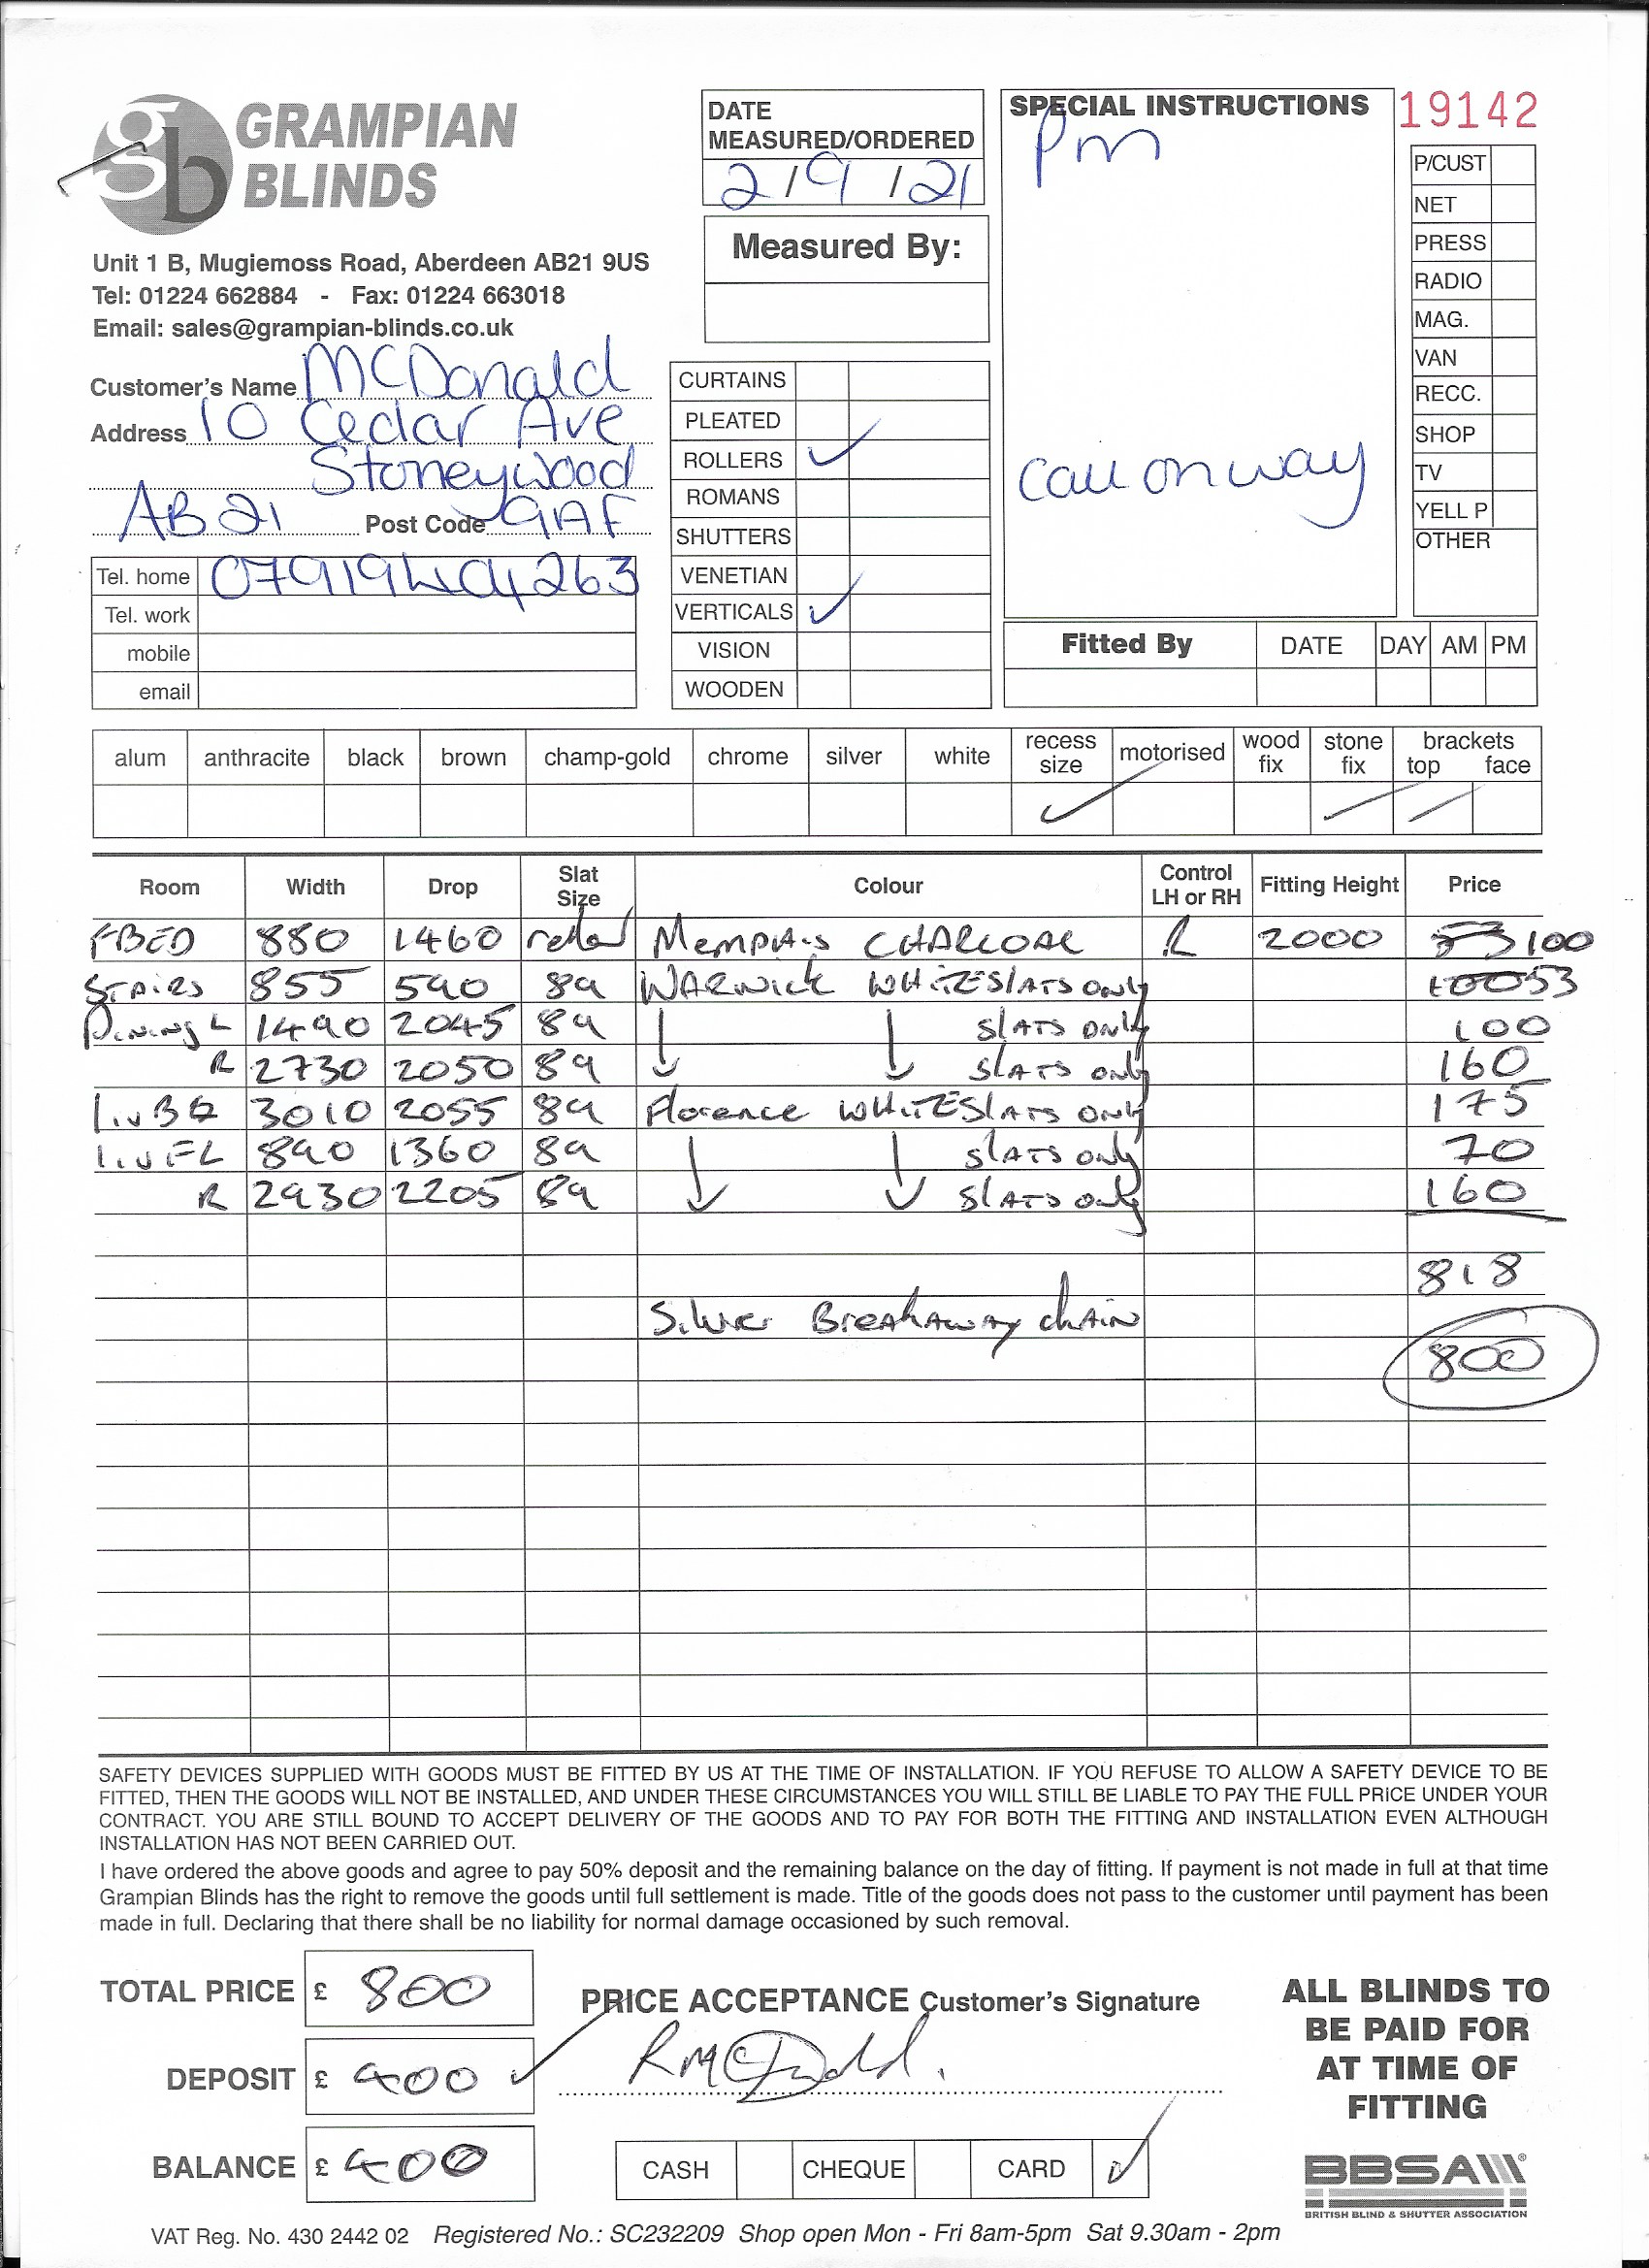 GRAMPIAN
BLINDS
Unit 1 B, Mugiemoss Road, Aberdeen AB21 9US
Tel: 01224 662884 - Fax: 01224 663018
Email: sales@grampian-blinds.co.uk
Customer's Name McDonald
Address 10 Cedar Ave
Stoneywood
AB21 Post Code 9AF
Tel. home
Tel. work
mobile
email
DATE
MEASURED/ORDERED
2/9/21
Measured By:
CURTAINS
PLEATED
ROLLERS ✓
ROMANS
SHUTTERS
VENETIAN
VERTICALS ✓
VISION
WOODEN
SPECIAL INSTRUCTIONS
Pm
Call on way
19142
P/CUST
NET
PRESS
RADIO
MAG.
VAN
RECC.
SHOP
TV
YELL P
OTHER
Fitted By DATE DAY AM PM
alum anthracite black brown champ-gold chrome silver white recess size motorised wood fix stone fix brackets top face
Room Width Drop Slat Size Colour Control LH or RH Fitting Height Price
FBED 880 1460 Memphis CHARCOAL R 2000 53 100
STAIRS 855 590 89 WARWICK WHITE SLATS ONLY 100 53
Dining L 1490 2045 89 ↓ ↓ SLATS ONLY 100
R 2730 2050 89 ↓ ↓ SLATS ONLY 160
3010 2055 89 Florence WHITE SLATS ONLY 175
Liv FL 890 1360 89 SLATS ONLY 70
R 2930 2205 89 ↓ ↓ SLATS ONLY 160
818
Silver Breakaway chain
800
SAFETY DEVICES SUPPLIED WITH GOODS MUST BE FITTED BY US AT THE TIME OF INSTALLATION. IF YOU REFUSE TO ALLOW A SAFETY DEVICE TO BE
FITTED, THEN THE GOODS WILL NOT BE INSTALLED, AND UNDER THESE CIRCUMSTANCES YOU WILL STILL BE LIABLE TO PAY THE FULL PRICE UNDER YOUR
CONTRACT. YOU ARE STILL BOUND TO ACCEPT DELIVERY OF THE GOODS AND TO PAY FOR BOTH THE FITTING AND INSTALLATION EVEN ALTHOUGH
INSTALLATION HAS NOT BEEN CARRIED OUT.
I have ordered the above goods and agree to pay 50% deposit and the remaining balance on the day of fitting. If payment is not made in full at that time
Grampian Blinds has the right to remove the goods until full settlement is made. Title of the goods does not pass to the customer until payment has been
made in full. Declaring that there shall be no liability for normal damage occasioned by such removal.
TOTAL PRICE £ 800
DEPOSIT £ 400 ✓
BALANCE £ 400
PRICE ACCEPTANCE Customer's Signature
CASH CHEQUE CARD ✓
ALL BLINDS TO
BE PAID FOR
AT TIME OF
FITTING
BBSA
BRITISH BLIND & SHUTTER ASSOCIATION
VAT Reg. No. 430 2442 02 Registered No.: SC232209 Shop open Mon - Fri 8am-5pm Sat 9.30am - 2pm